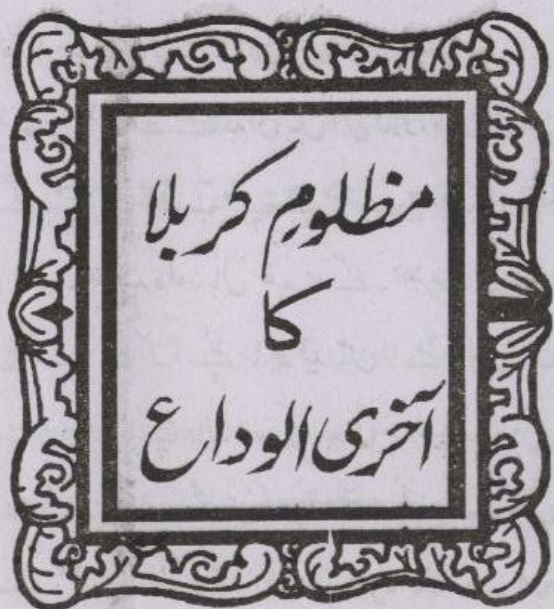 مظلومِ کربلا
کا
آخری الوداع